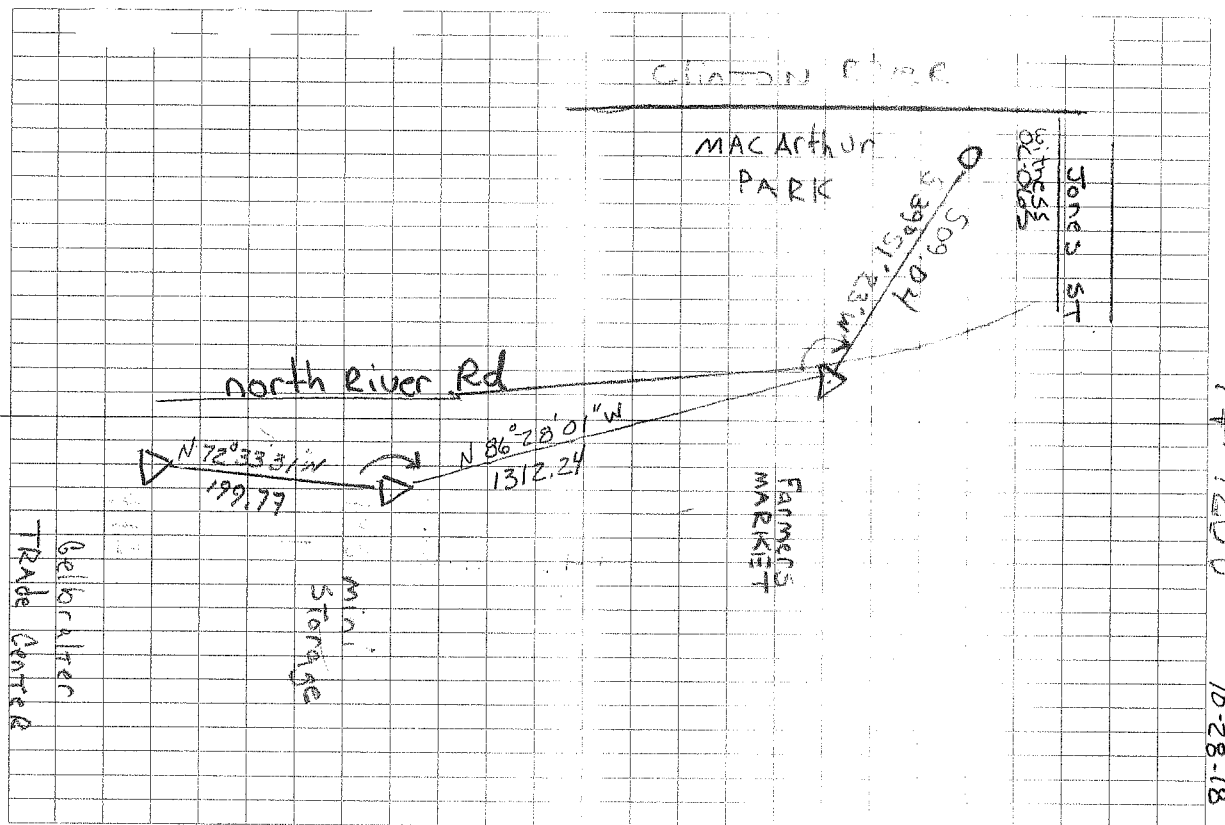 Clinton River
MAC Arthur
PARK
Jones ST
witness
S 39° 51' 23" W
509.04
north River Rd
N 72° 33' 31" W
199.77
N 86°-28'01" W
1312.24
Farmers
MARKET
mini
Storage
Gelbralter
TRAde CenteR
10-28-18